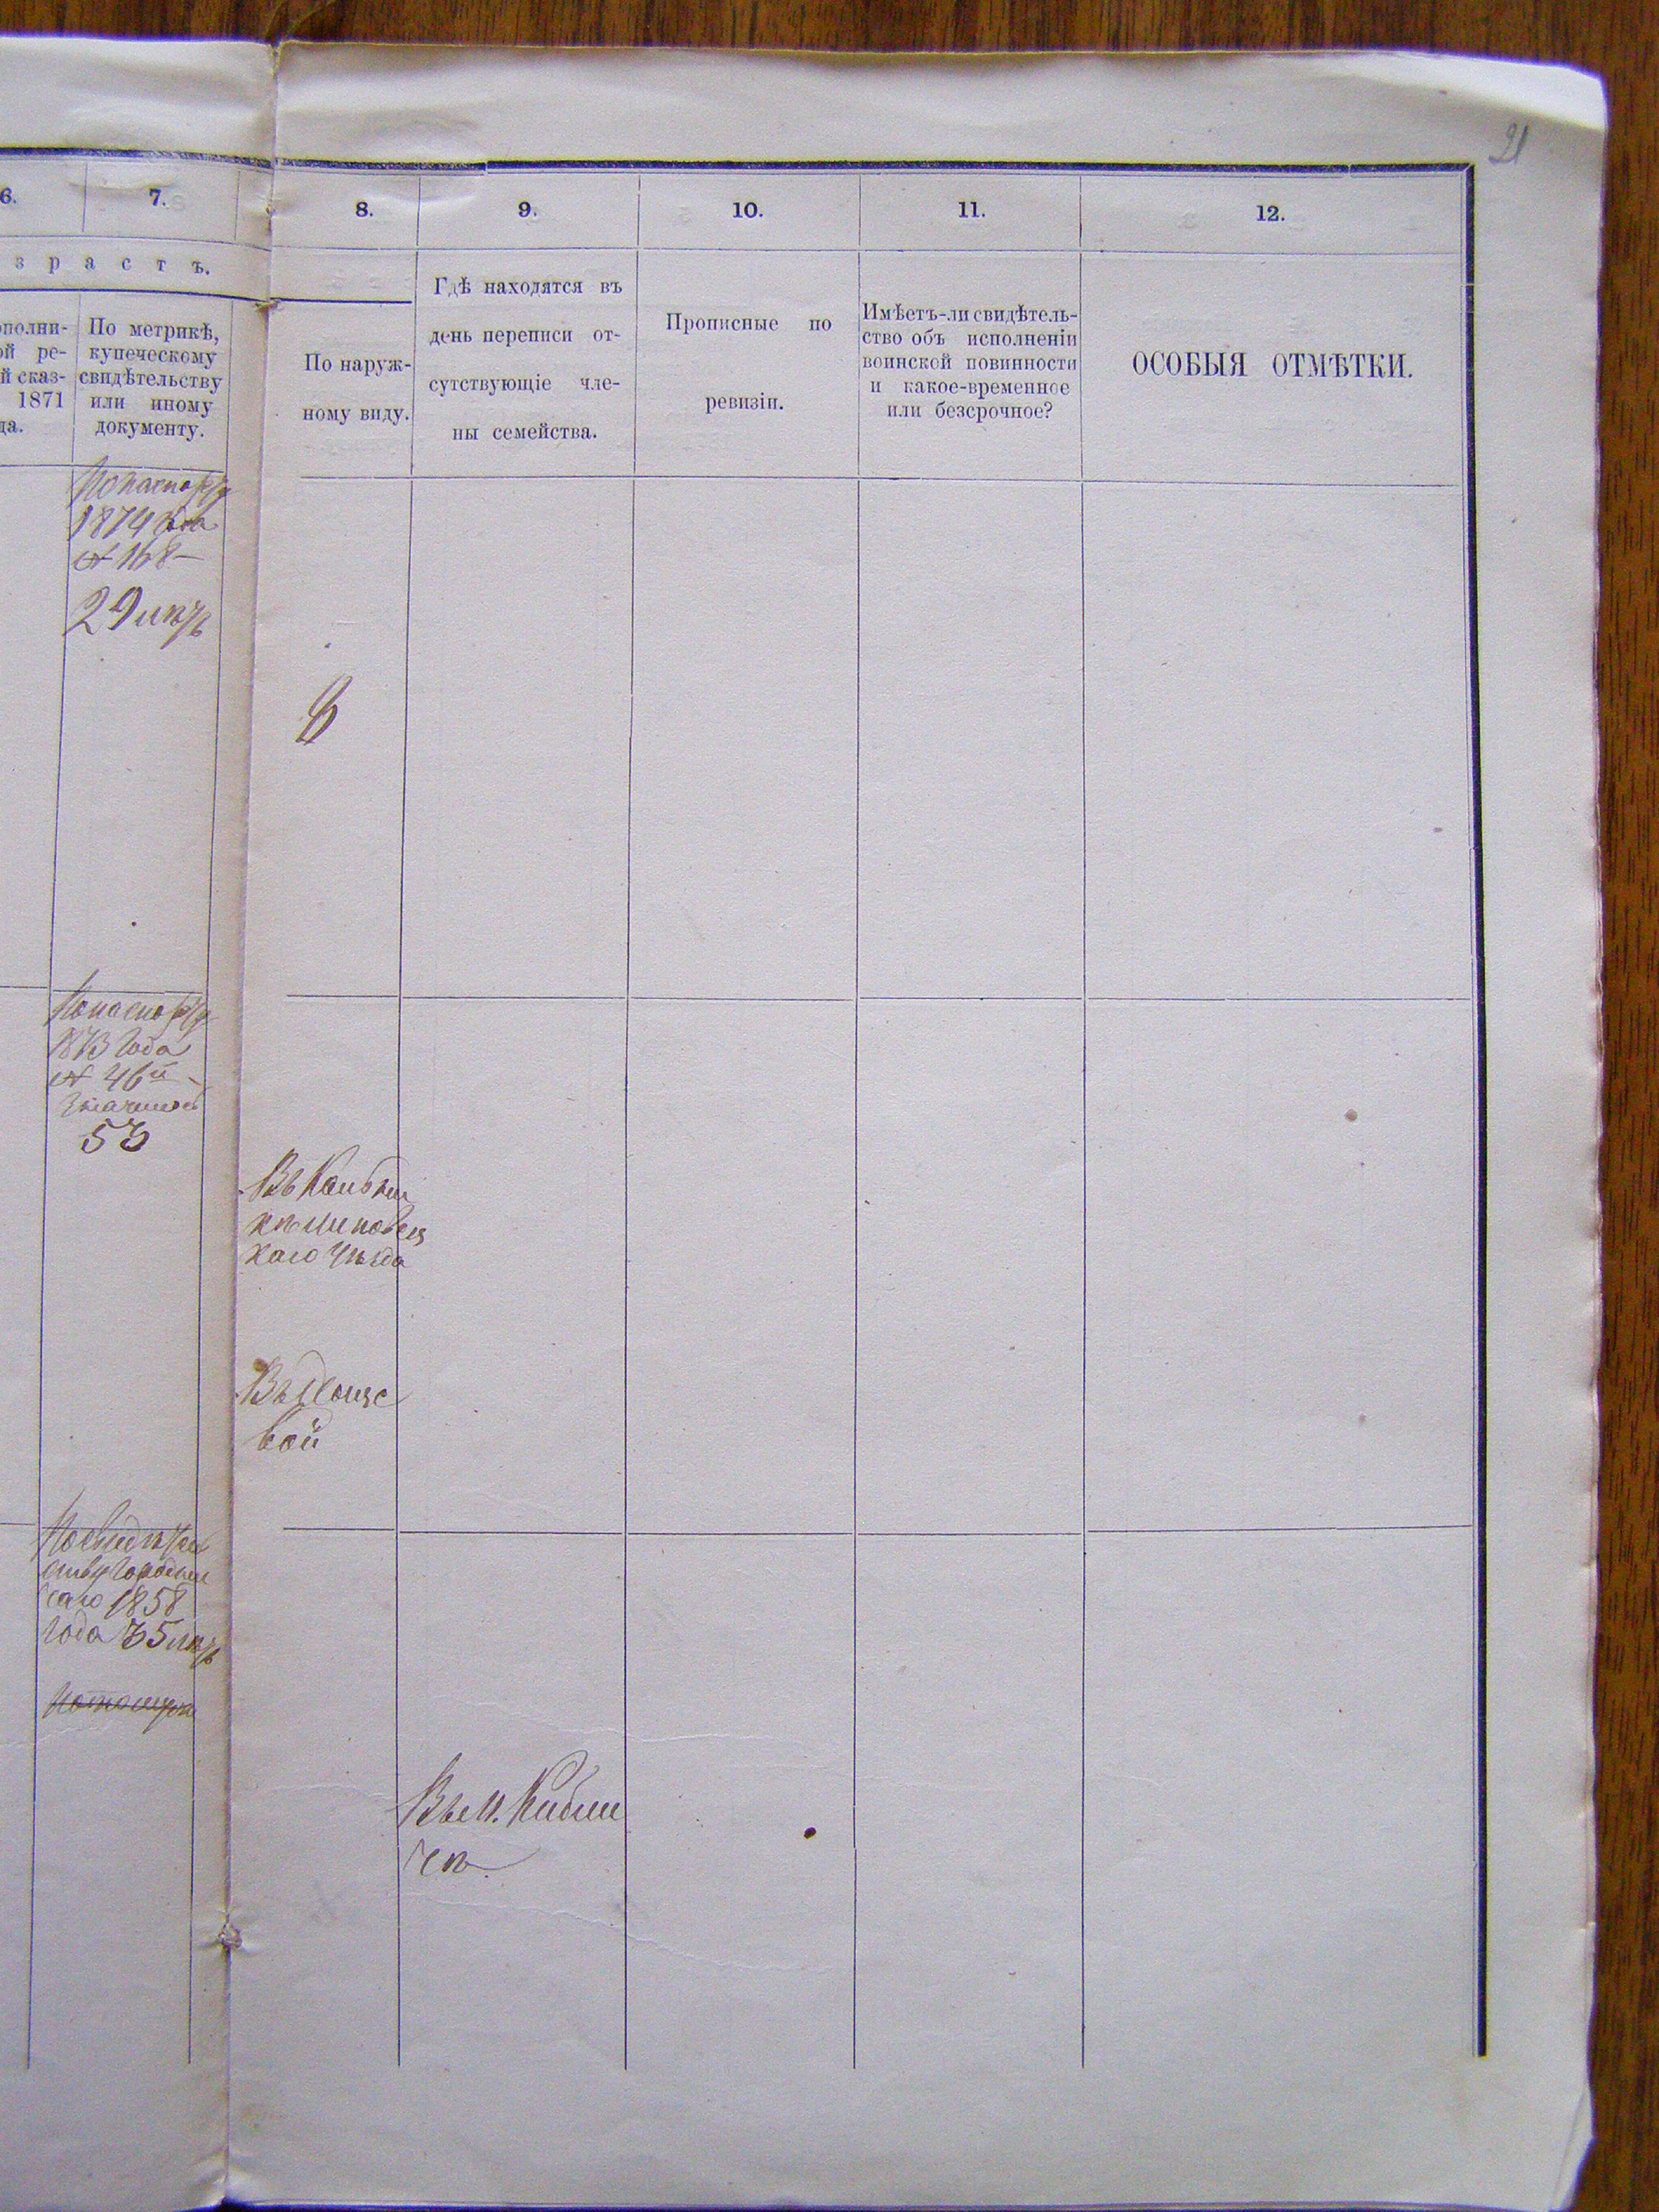 21
6. 7. 8. 9. 10. 11. 12.
з р а с т ъ.
ополни-
ой ре-
й сказ-
1871
да.
По метрикѣ,
купеческому
свидѣтельству
или иному
документу.
По наруж-
ному виду.
Гдѣ находятся въ
день переписи от-
сутствующіе чле-
ны семейства.
Прописные по
ревизіи.
Имѣетъ-ли свидѣтель-
ство объ исполненіи
воинской повинности
и какое-временное
или безсрочное?
ОСОБЫЯ ОТМѢТКИ.
Попаспорту
1874 года
№ 168
29 лѣтъ
8
Попаспорту
1873 года
№ 46
53
Въ
каго Уѣзда
вой
Посвидѣтель
ству
1858
года 35 лѣтъ
Въ м. Кибли
чѣ